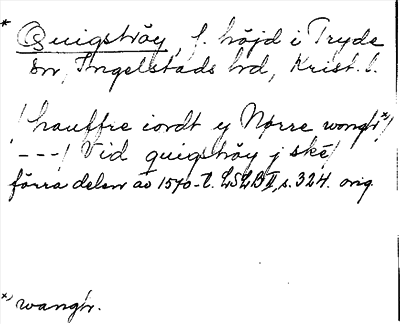 * Quigshöy, f. höjd i Tryde
sn, Ingelstads hd, Krist. l.
/ hauffre iordt ey Nørre wongh*)/
---/ Vid quigshöy j ske/
förra delen av 1570-t. LSLB II, s. 324. orig.
*) wangh.